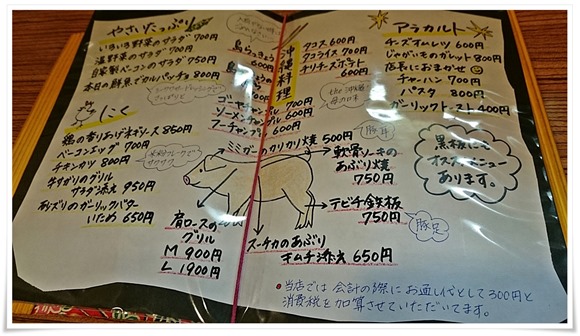 やさいたっぷり
いきいき野菜のサラダ 700円
温野菜のサラダ 700円
自家製ベーコンのサラダ 750円
本日の鮮魚でカルパッチョ 800円
にく
鶏の香りあげネギソース 850円
ベーコンエッグ 700円
チキンカツ 800円
サクサク
牛サガリのグリル
サラダ添え 950円
砂ズリのガーリックバター
いため 650円
沖縄料理
島らっきょう
600円
島らっきょうの
ゴーヤチャンプル 700円
ソーメンチャンプル 600円
フーチャンプル 600円
タコス 600円
タコライス 700円
チリチーズポテト
600円
the 沖縄!
母の味
アラカルト
チーズオムレツ 600円
じゃがいものガレット 800円
店長におまかせ
チャーハン 700円
パスタ 800円
ガーリックトースト 400円
黒板にも
オススメメニュー
あります。
ミミガーのカリカリ焼 500円
豚耳
軟骨ソーキの
あぶり焼
750円
テビチ鉄板
750円
豚足
肩ロースの
グリル
M 900円
L 1900円
スーチカのあぶり
キムチ添え 650円
・当店では 会計の際に お通し代として300円と
消費税を加算させていただいてます。